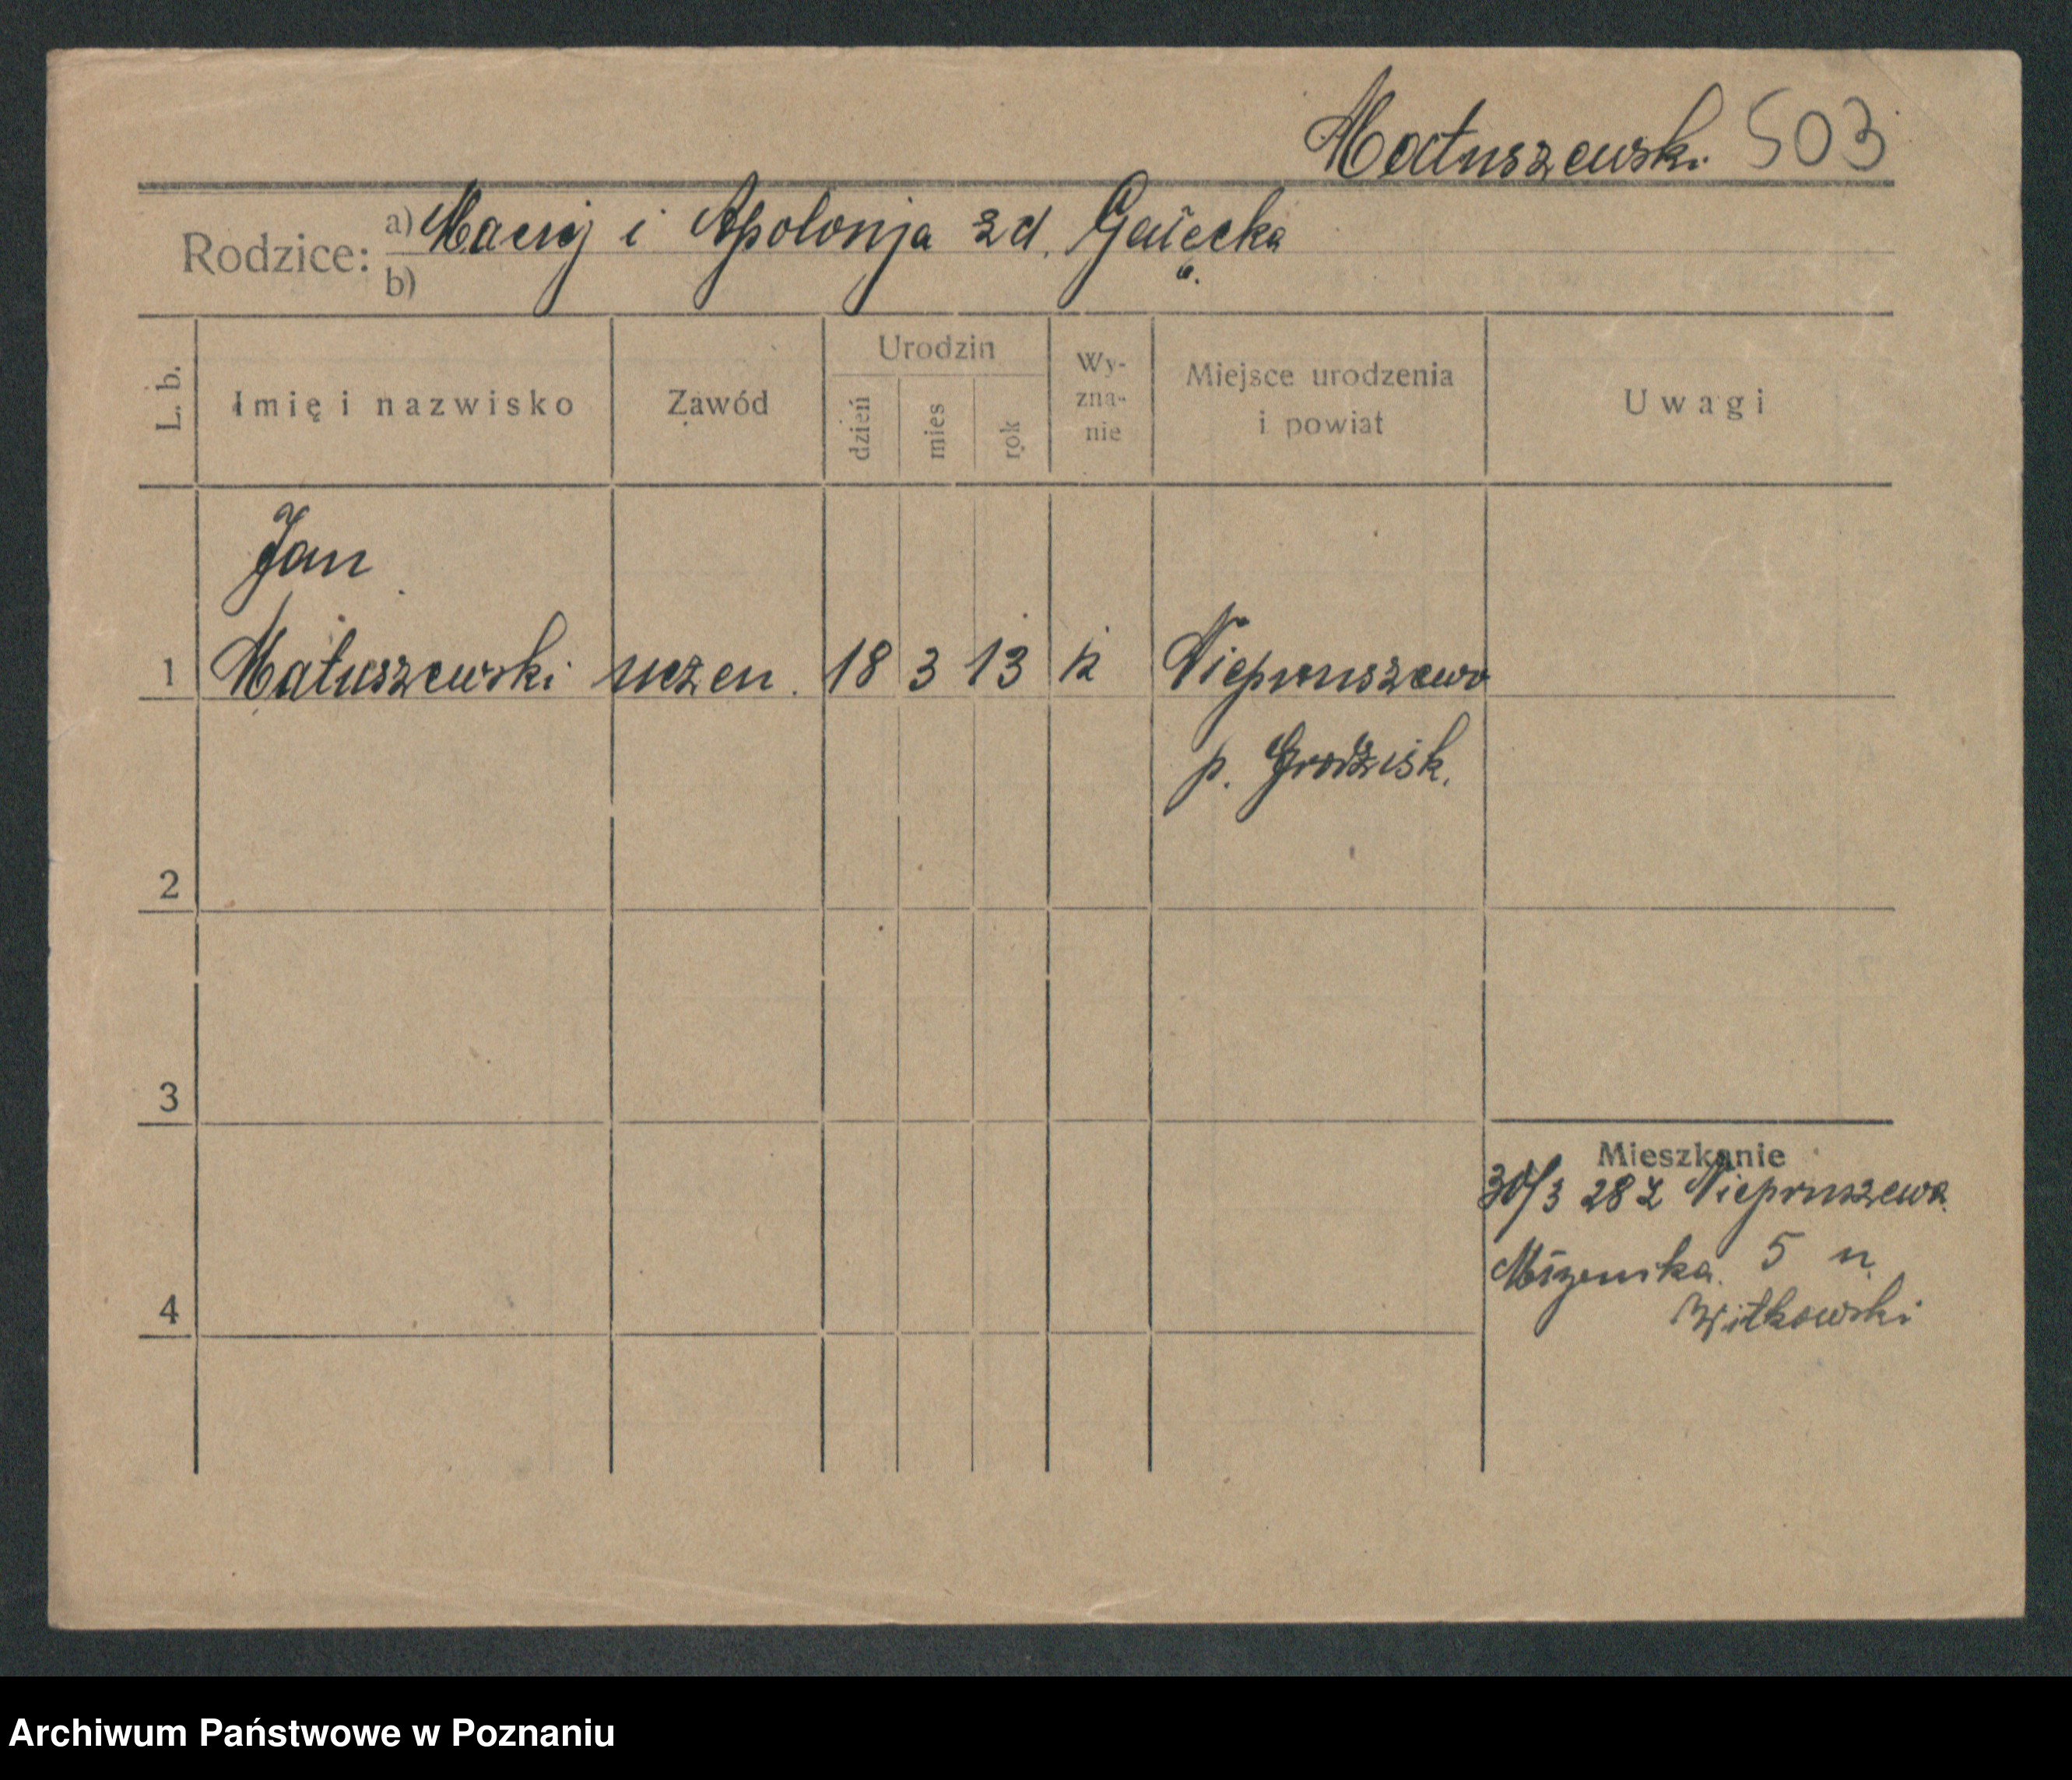 Matuszewski 503
Rodzice: a) Maciej i Apolonja zd. Gałęcka
b)
L. b.
Imię i nazwisko
Zawód
Urodzin
dzień
mies
rok
Wy-
zna-
nie
Miejsce urodzenia
i powiat
Uwagi
Jan
1 Matuszewski uczen. 18 3 13 k Niepruszewo
p. Grodzisk.
2
3
Mieszkanie
30/3 28 z Niepruszewa
5 u.
4
Witkowski
Archiwum Państwowe w Poznaniu